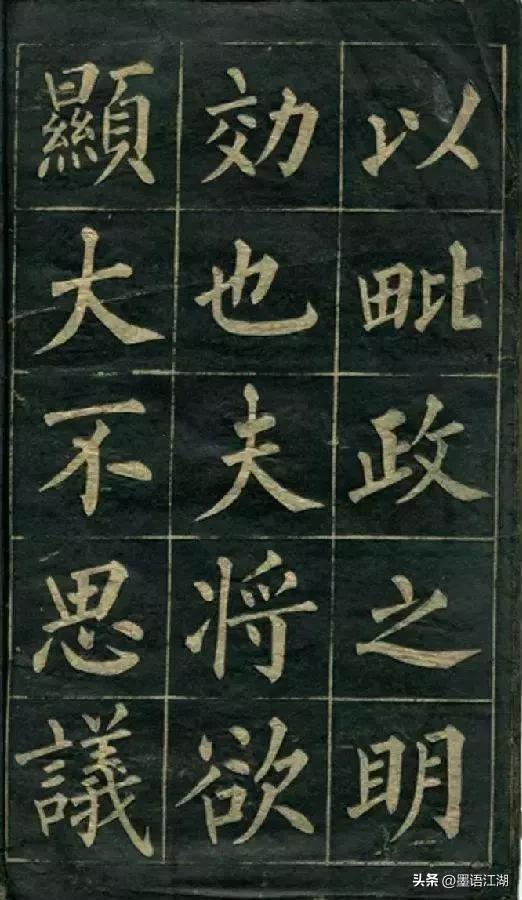 以毗政之明
効也夫将欲
顯大不思議
头条 @墨语江湖